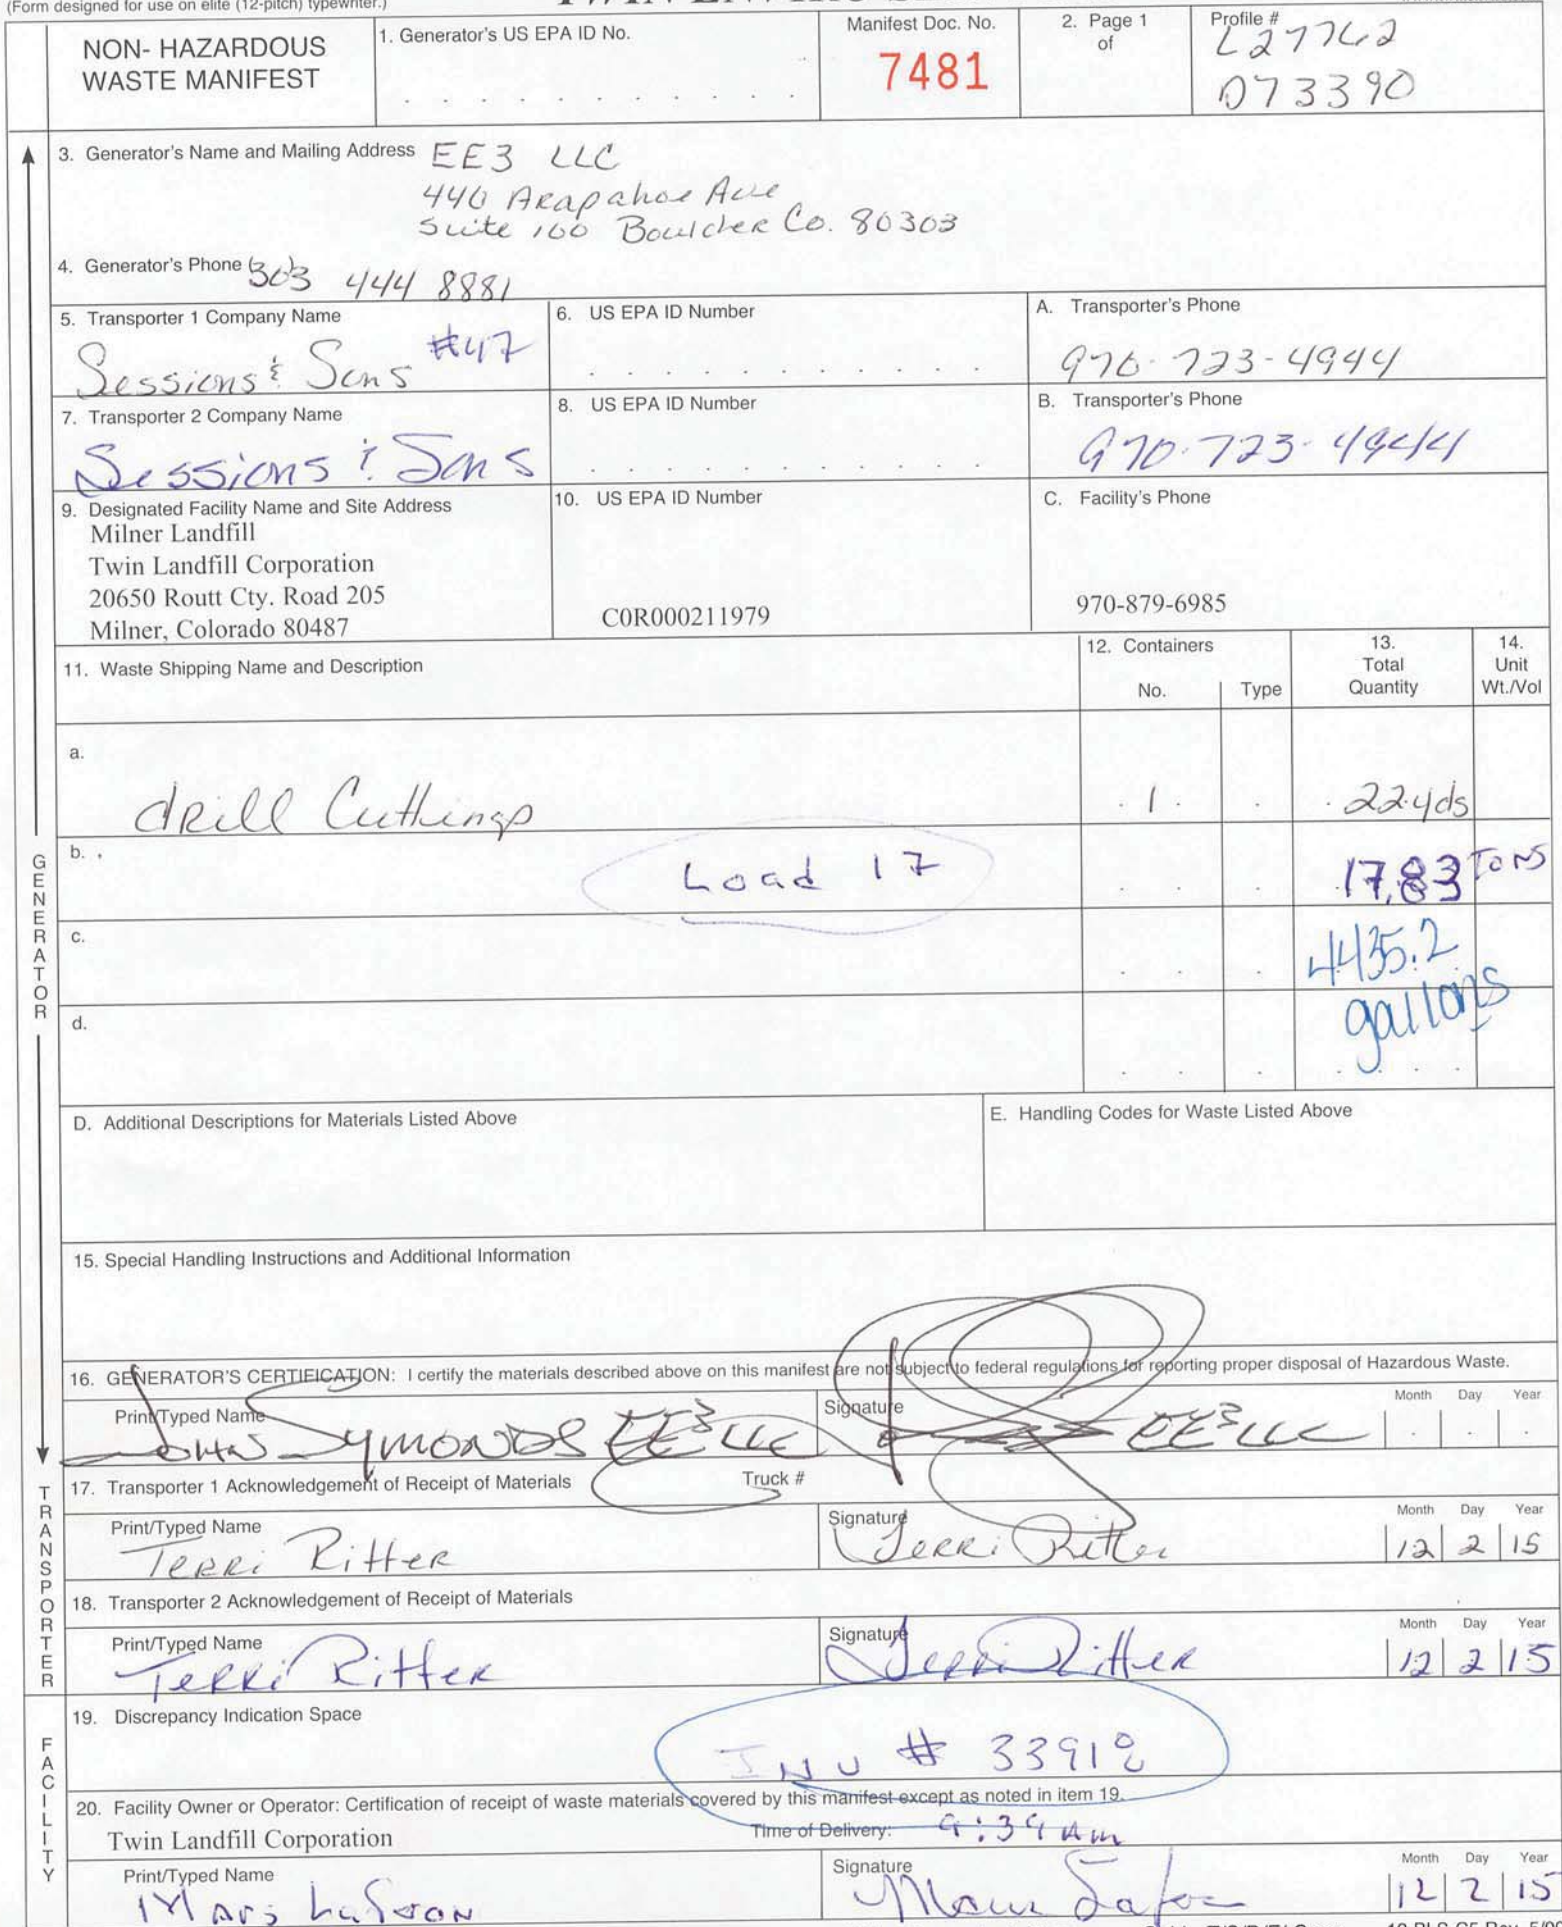 (Form designed for use on elite (12-pitch) typewriter.)
NON- HAZARDOUS
WASTE MANIFEST
1. Generator's US EPA ID No.
Manifest Doc. No.
7481
2. Page 1
of
Profile #
L27762
D73390
3. Generator's Name and Mailing Address EE3 LLC
440 Arapahoe Ave
Suite 100 Boulder Co. 80303
4. Generator's Phone (303 444 8881
5. Transporter 1 Company Name
Sessions & Sons #47
6. US EPA ID Number
A. Transporter's Phone
970-723-4944
7. Transporter 2 Company Name
Sessions & Sons
8. US EPA ID Number
B. Transporter's Phone
970-723-4944
9. Designated Facility Name and Site Address
Milner Landfill
Twin Landfill Corporation
20650 Routt Cty. Road 205
Milner, Colorado 80487
10. US EPA ID Number
C0R000211979
C. Facility's Phone
970-879-6985
11. Waste Shipping Name and Description
12. Containers
No. Type
13.
Total
Quantity
14.
Unit
Wt./Vol
a.
drill Cuttings
1
22 yds
b.
Load 17
17.83 TONS
c.
4435.2
gallons
d.
D. Additional Descriptions for Materials Listed Above
E. Handling Codes for Waste Listed Above
15. Special Handling Instructions and Additional Information
16. GENERATOR'S CERTIFICATION: I certify the materials described above on this manifest are not subject to federal regulations for reporting proper disposal of Hazardous Waste.
Print/Typed Name
John Symonds EE3 LLC
Signature
EE3 LLC
Month Day Year
17. Transporter 1 Acknowledgement of Receipt of Materials
Truck #
Print/Typed Name
Terri Ritter
Signature
Terri Ritter
Month Day Year
12 2 15
18. Transporter 2 Acknowledgement of Receipt of Materials
Print/Typed Name
Terri Ritter
Signature
Terri Ritter
Month Day Year
12 2 15
19. Discrepancy Indication Space
INV # 33918
20. Facility Owner or Operator: Certification of receipt of waste materials covered by this manifest except as noted in item 19.
Twin Landfill Corporation
Time of Delivery: 9:39 AM
Print/Typed Name
Signature
Month Day Year
12 2 15
GENERATOR
TRANSPORTER
FACILITY